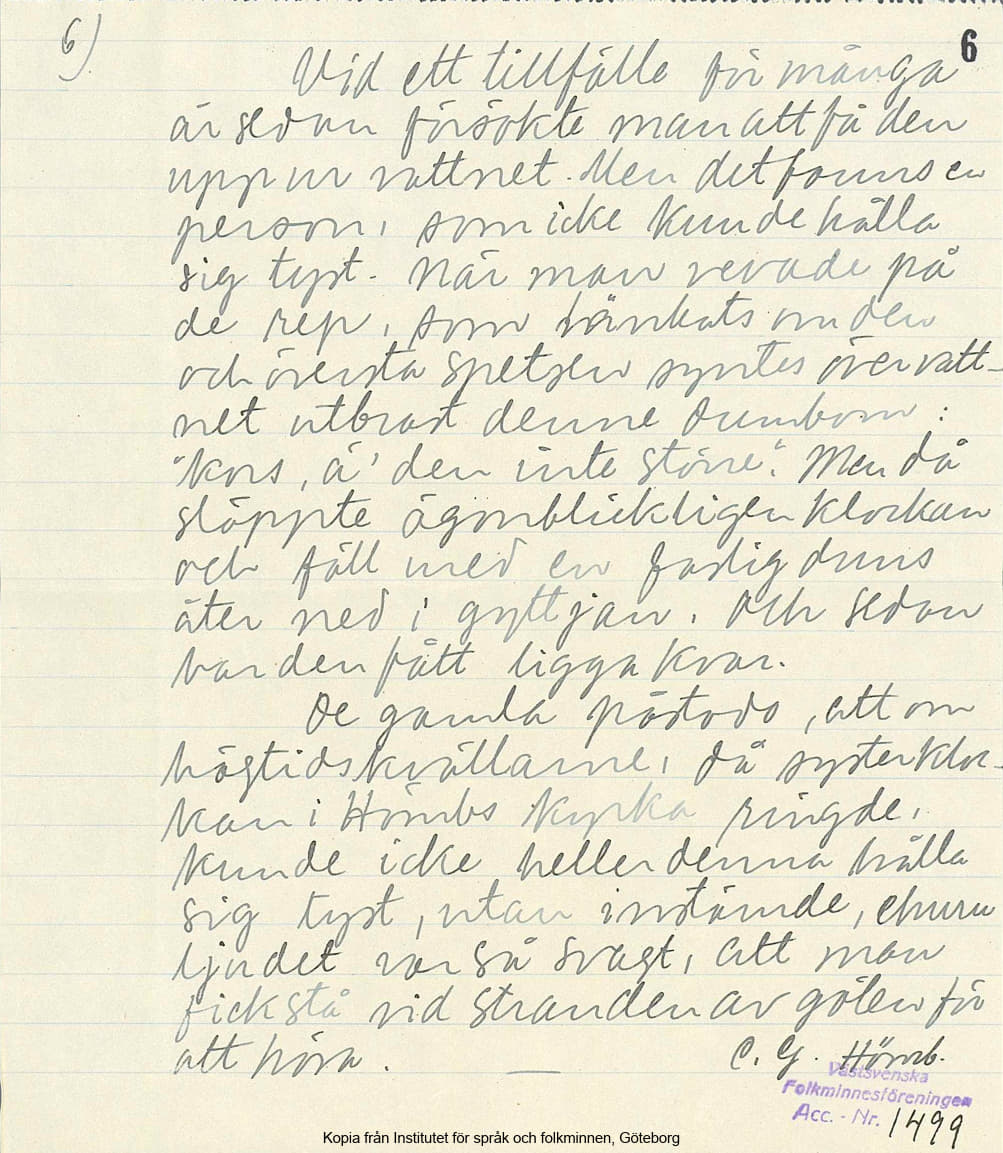 6)
6
Vid ett tillfälle för många
år sedan försökte man att få den
upp ur vattnet. Men det fanns en
person, som icke kunde hålla
sig tyst. När man vevade på
de rep, som bänkats om den
och översta spetsen syntes över vatt-
net utbrast denne dumbom:
"Kors, ä' den inte större". Men då
släppte ögonblickligen klockan
och föll med en faslig duns
åter ned i gyttjan. Och sedan
har den fått ligga kvar.
De gamla påstodo, att om
högtidskvällarne, då systerkloc-
kan i Hömbs kyrka ringde,
kunde icke heller denna hålla
sig tyst, utan instämde, churu
ljudet var så svagt, att man
fick stå vid stranden av gölen för
att höra.
C. G. Hömb.
Västsvenska
Folkminnesföreningen
Acc. - Nr. 1499
Kopia från Institutet för språk och folkminnen, Göteborg